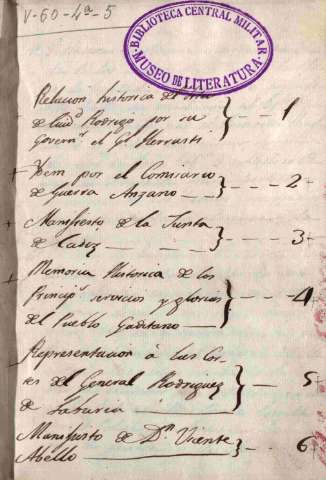 V-60-4ª-5
BIBLIOTECA CENTRAL MILITAR
MUSEO DE LITERATURA
Relacion historica del sitio
de Ciudᵈ Rodrigo por su 1
Governʳ el Gl Herrasti
Ydem por el Comisario 2
de Guerra Anzano
Manifiesto de la Junta 3
de Cadiz
Memoria Historica de los
Princips servicios y glorias 4
del Pueblo Gaditano
Representacion à las Cor-
tes del General Rodriguez 5
de Tabaria
Manifiesto de Dⁿ Vicente 6
Abello